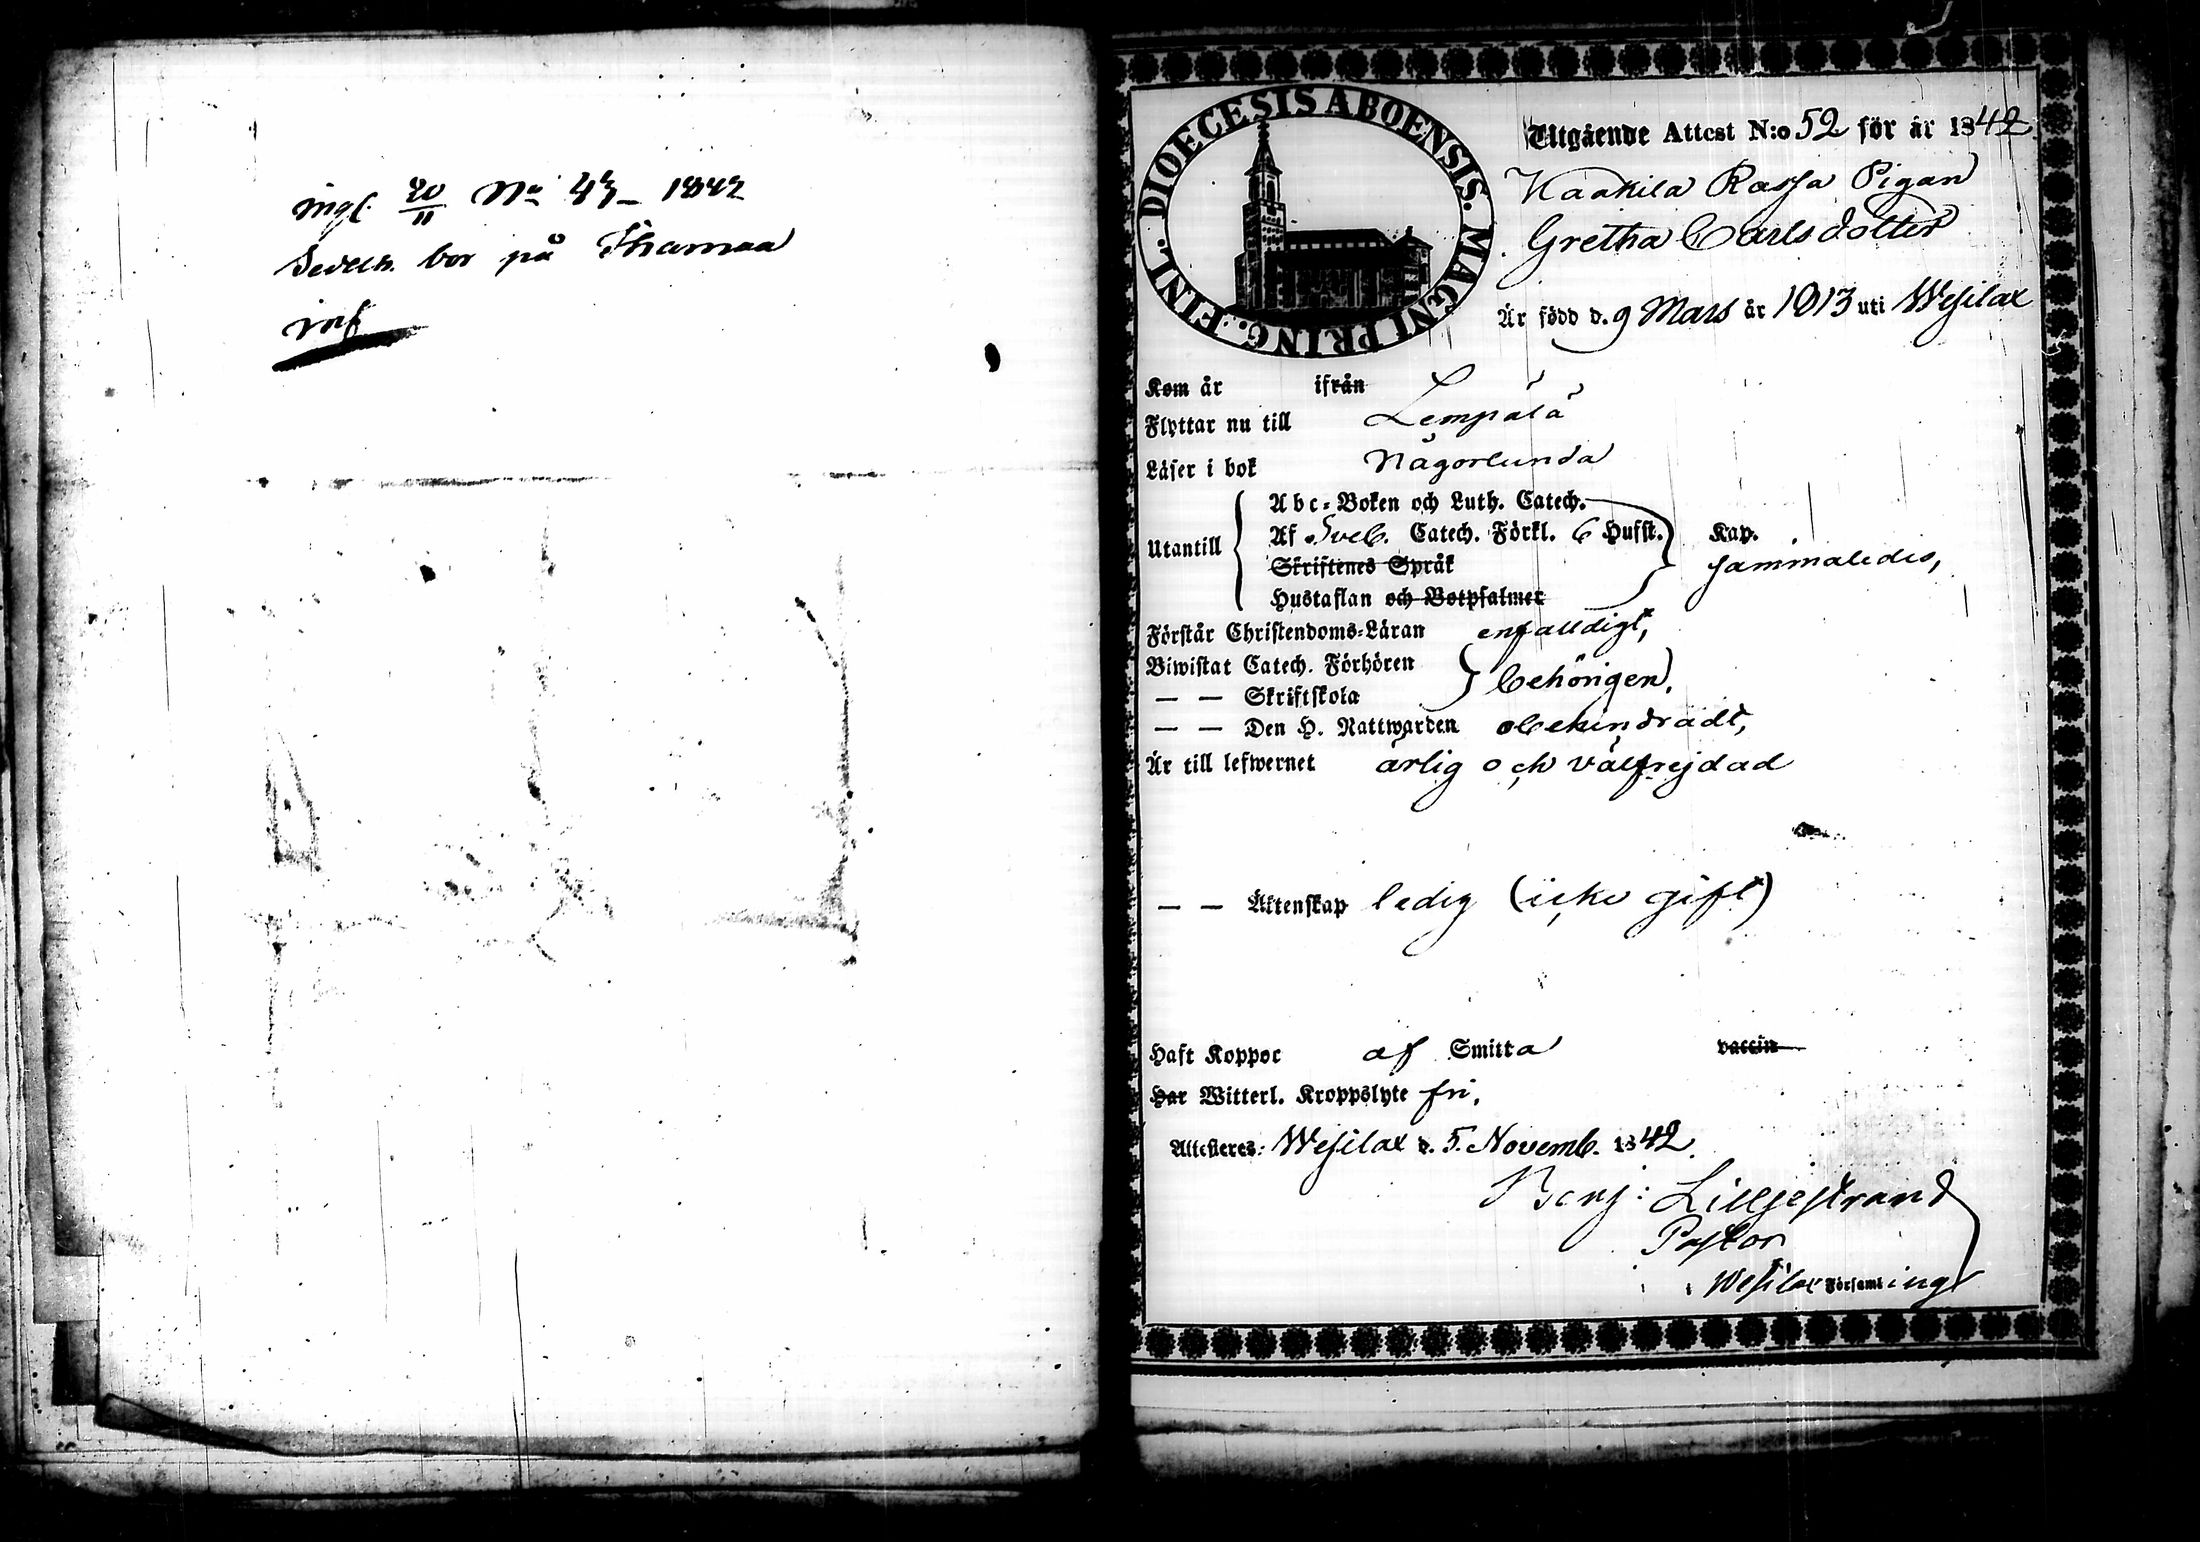 ingl. 20/11 No 43 1842
bor på Thamaa
inf
DIOECESIS ABOENSIS. MAGNI PRINC. FINL.
Utgående Attest N:o 52 för år 1842
Kaakila Rassa Pigan
Gretha Carlsdotter
Är född d. 9 Mars år 1813 uti Wesilax
Kom år ifrån
Flyttar nu till Lempälä
Läser i bok någorlunda
Abc-Boken och Luth. Catech.
Utantill Af Sveb. Catech. Förkl. 6 Hufst. Kap.
Skriftenes Språk sammaledes,
Hustaflan och Botpsalmer
Förstår Christendoms-Läran enfalldigt,
Biwistat Catech. Förhören
— — Skriftskola behörigen,
— — Den H. Nattwarden obehindradt,
Är till lefwernet ärlig och välfrejdad
— — Äktenskap ledig (icke gift)
Haft Koppor af Smitta vaccin
Har Witterl. Kroppslyte fri,
Attesteres: Wesilax d. 5. Novemb. 1842.
Benj: Lilljestrand
Pastor
Wesilax Församling